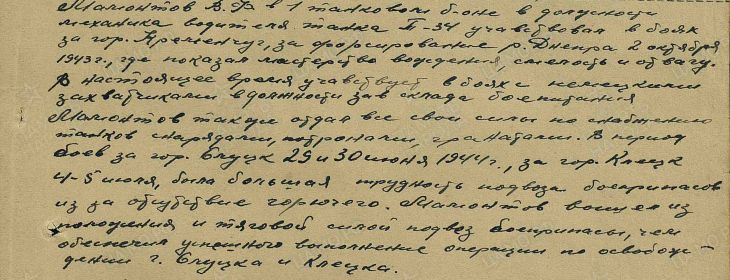 Мамонтов В.Ф в 1 танковом б-оне в должности
механика водителя танка Т-34 участвовал в боях
за гор. Кременчуг, за форсирование р. Днепра 2 октября
1943г., где показал мастерство вождения, смелость и отвагу.
В настоящее время учавствует в боях с немецкими
захватчиками в должности зав склада боепитания
Мамонтов также отдал все свои силы по снабжению
танков снарядами, патронами, гранатами. В период
боев за гор. Слуцк 29 и 30 июня 1944г., за гор. Клецк
4-5 июля, была большая трудность подвоза боеприпасов
из за отсутствие горючего. Мамонтов вышел из
положения и тяговой силой подвоз боеприпасы, чем
обеспечил успешного выполнение операции по освобож-
дении г. Слуцка и Клецка.